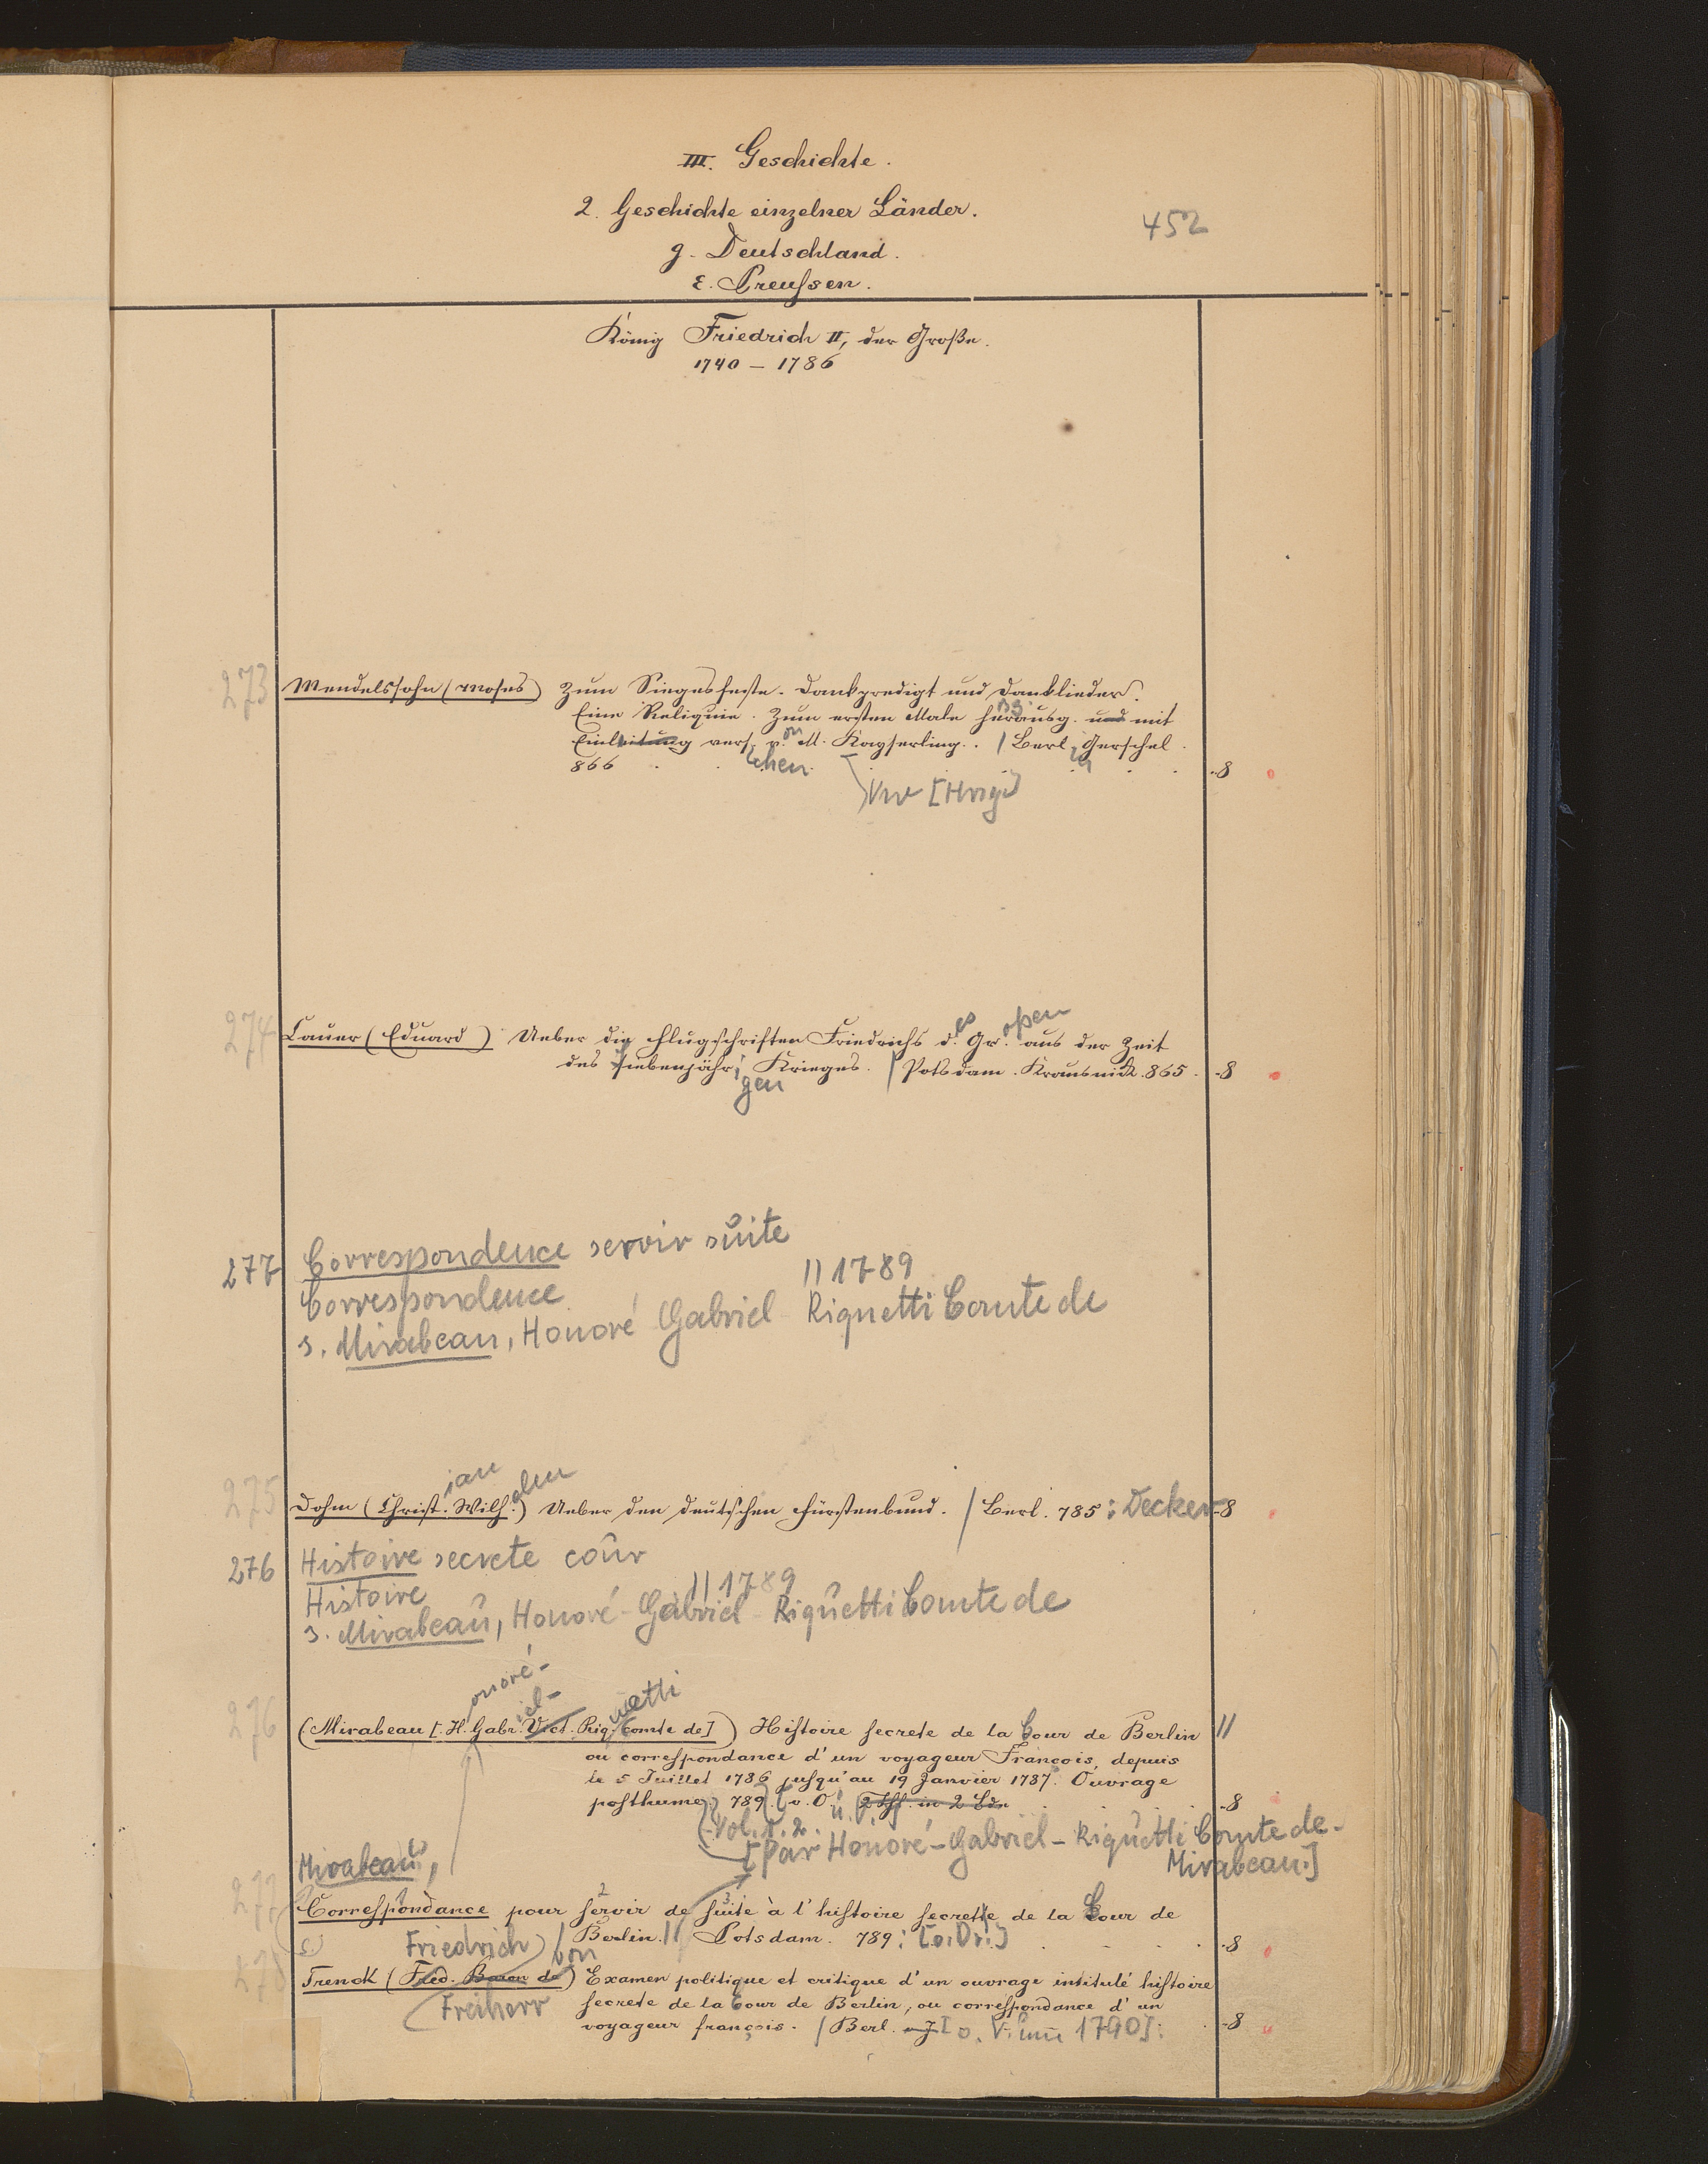 III. Geschichte.
2. Geschichte einzelner Länder.
452
g. Deutschland.
ε. Preußen.
König Friedrich II, der Große.
1740 – 1786
273 Mendelssohn (Moses) Zum Siegesfeste. Dankpredigt und Danklieder.
Eine Reliquie. Zum ersten Male herausg. und mit
Einleitung vers. von M. Kayserling. / Berl. Gerschel.
866 . . . 8
ehen
274 Cauer (Eduard) Ueber die Flugschriften Friedrichs des Großen aus der Zeit
des siebenjähr. Krieges. / Potsdam. Krausnick. 865. 8
gen
277 Correspondence servir suite
Correspondence || 1789
s. Mirabeau, Honoré Gabriel Riquetti Comte de
275 Dohm (Christian Wilhelm) Ueber den deutschen Fürstenbund. / Berl. 785: Decker 8
276 Histoire secrete cour
Histoire || 1789
s. Mirabeau, Honoré-Gabriel-Riquetti Comte de
onoré- iel- uetti
276 (Mirabeau [. H. Gabr. Vict. Riq. comte de]) Histoire secrete de la Cour de Berlin ||
ou correspondance d'un voyageur François, depuis
le 5 Juillet 1786 jusqu'au 19 Janvier 1787. Ouvrage
posthume. 789. o. O. 2 Thl. in 2 Bdn 8
Vol. 1. 2.
[Par Honoré-Gabriel-Riquetti Comte de-
Mirabeau.]
Mirabeau,
277 Correspondance pour servir de suite à l'histoire secrette de la Cour de
Berlin. || Potsdam. 789: [o. Dr.] 8
Friedrich von
278 Trenck (Fred. Baron de) Examen politique et critique d'un ouvrage intitulé histoire
Freiherr secrete de la Cour de Berlin, ou correspondance d'un
voyageur françois. / Berl. [o. V. um 1790]: 8